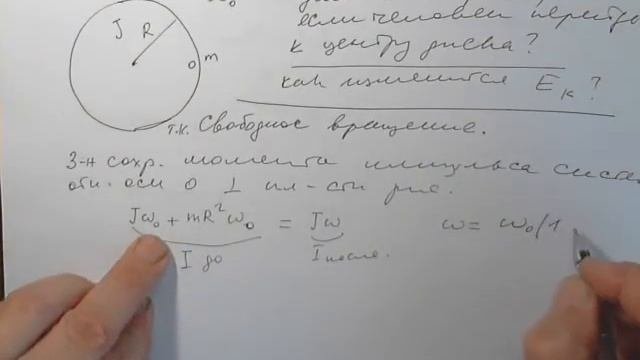 ω₀
если человек
J R
m
к центру диска?
как изменится Eк?
т.к. Свободное вращение.
З-н сохр. момента импульса
отн. оси O ⊥ пл-сти рис.
Jω₀ + mR²ω₀ = Jω ω = ω₀(1
I до I после.